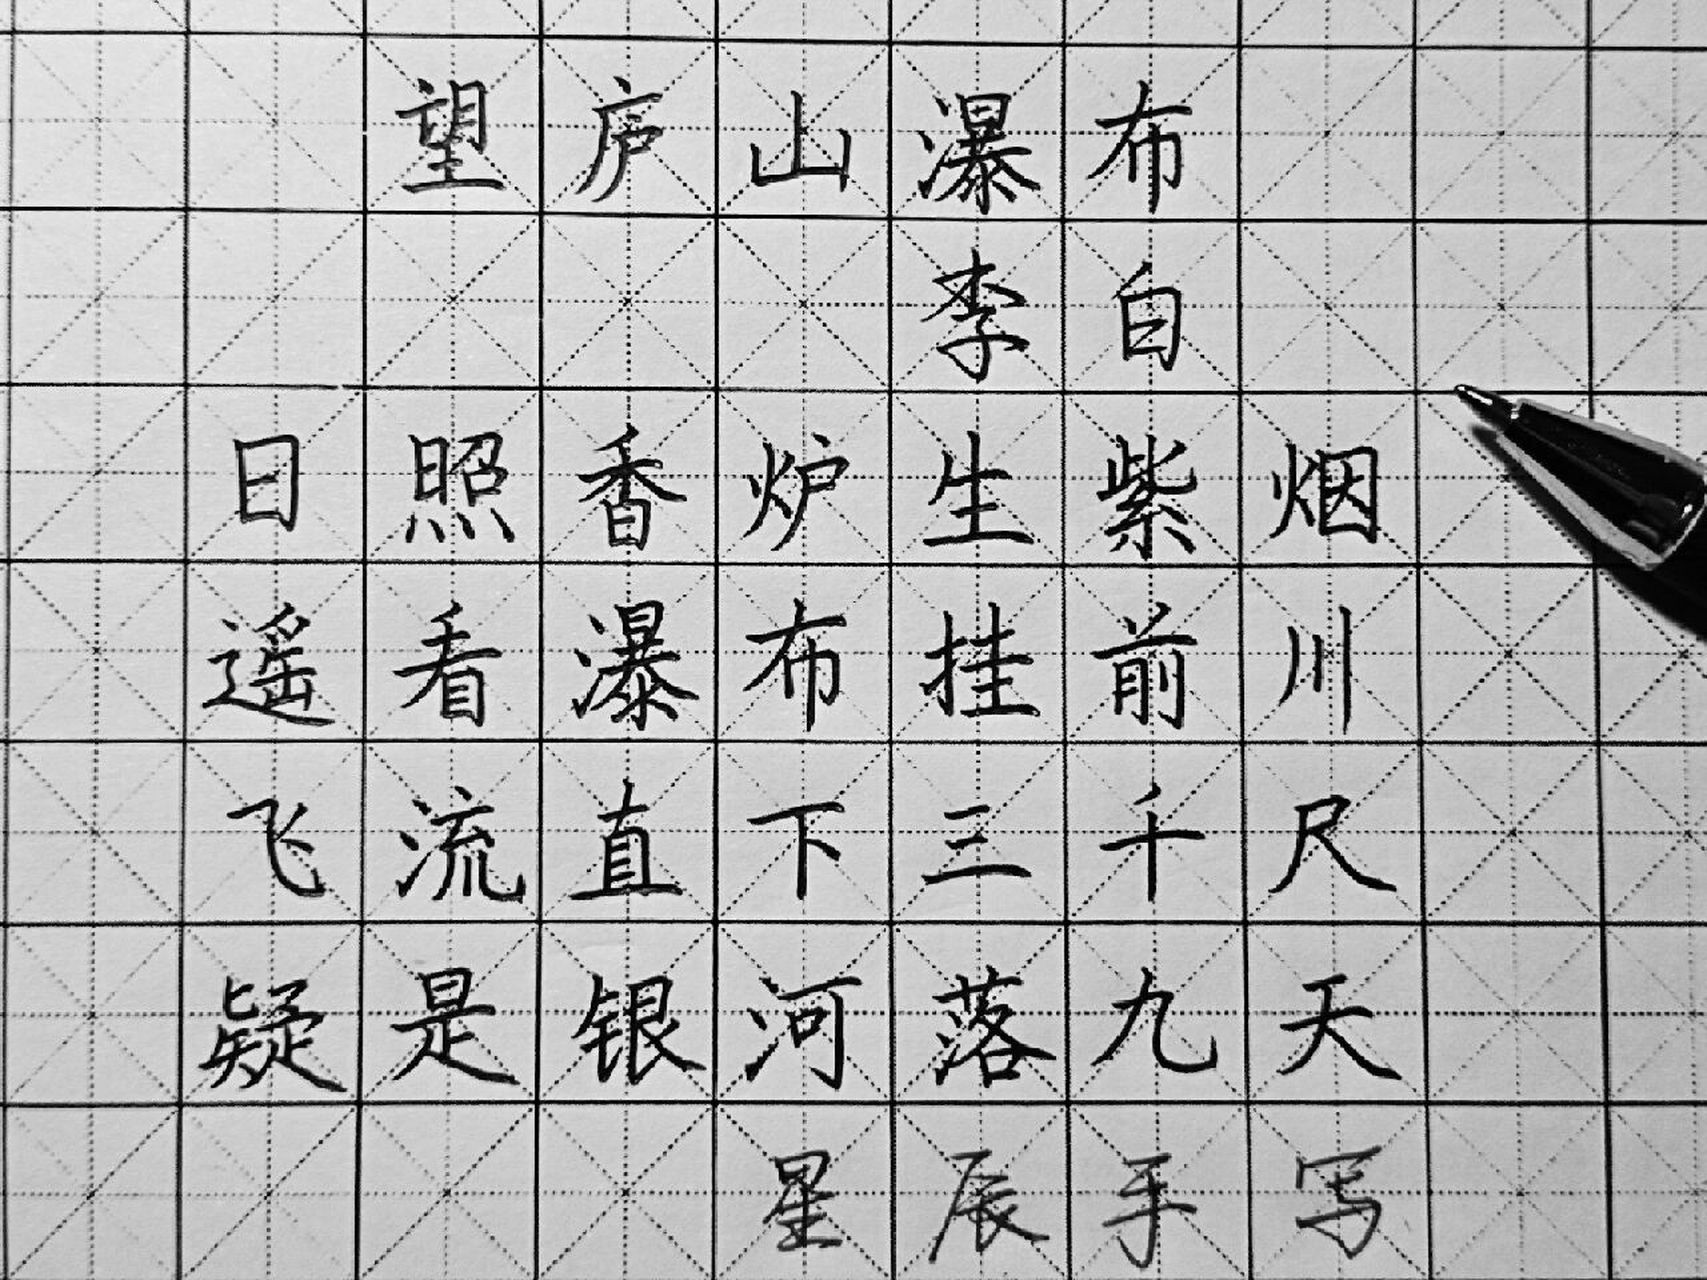 望庐山瀑布
李白
日照香炉生紫烟
遥看瀑布挂前川
飞流直下三千尺
疑是银河落九天
星辰手写